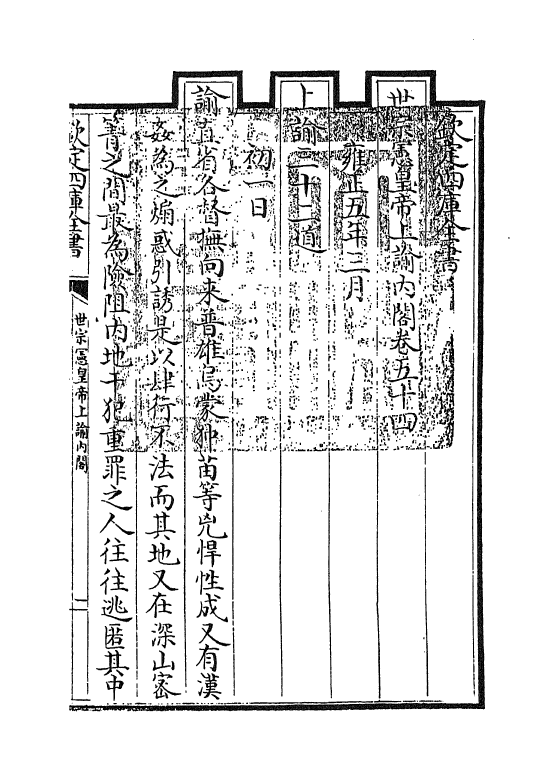 欽定四庫全書
世宗憲皇帝上諭內閣卷五十四
雍正五年三月
上諭二十二道
初一日
諭直省各督撫向來普雄烏蒙狆苗等兇悍性成又有漢
奸為之煽惑引誘是以肆行不法而其地又在深山密
箐之間最為險阻內地干犯重罪之人往往逃匿其中
欽定四庫全書
世宗憲皇帝上諭內閣